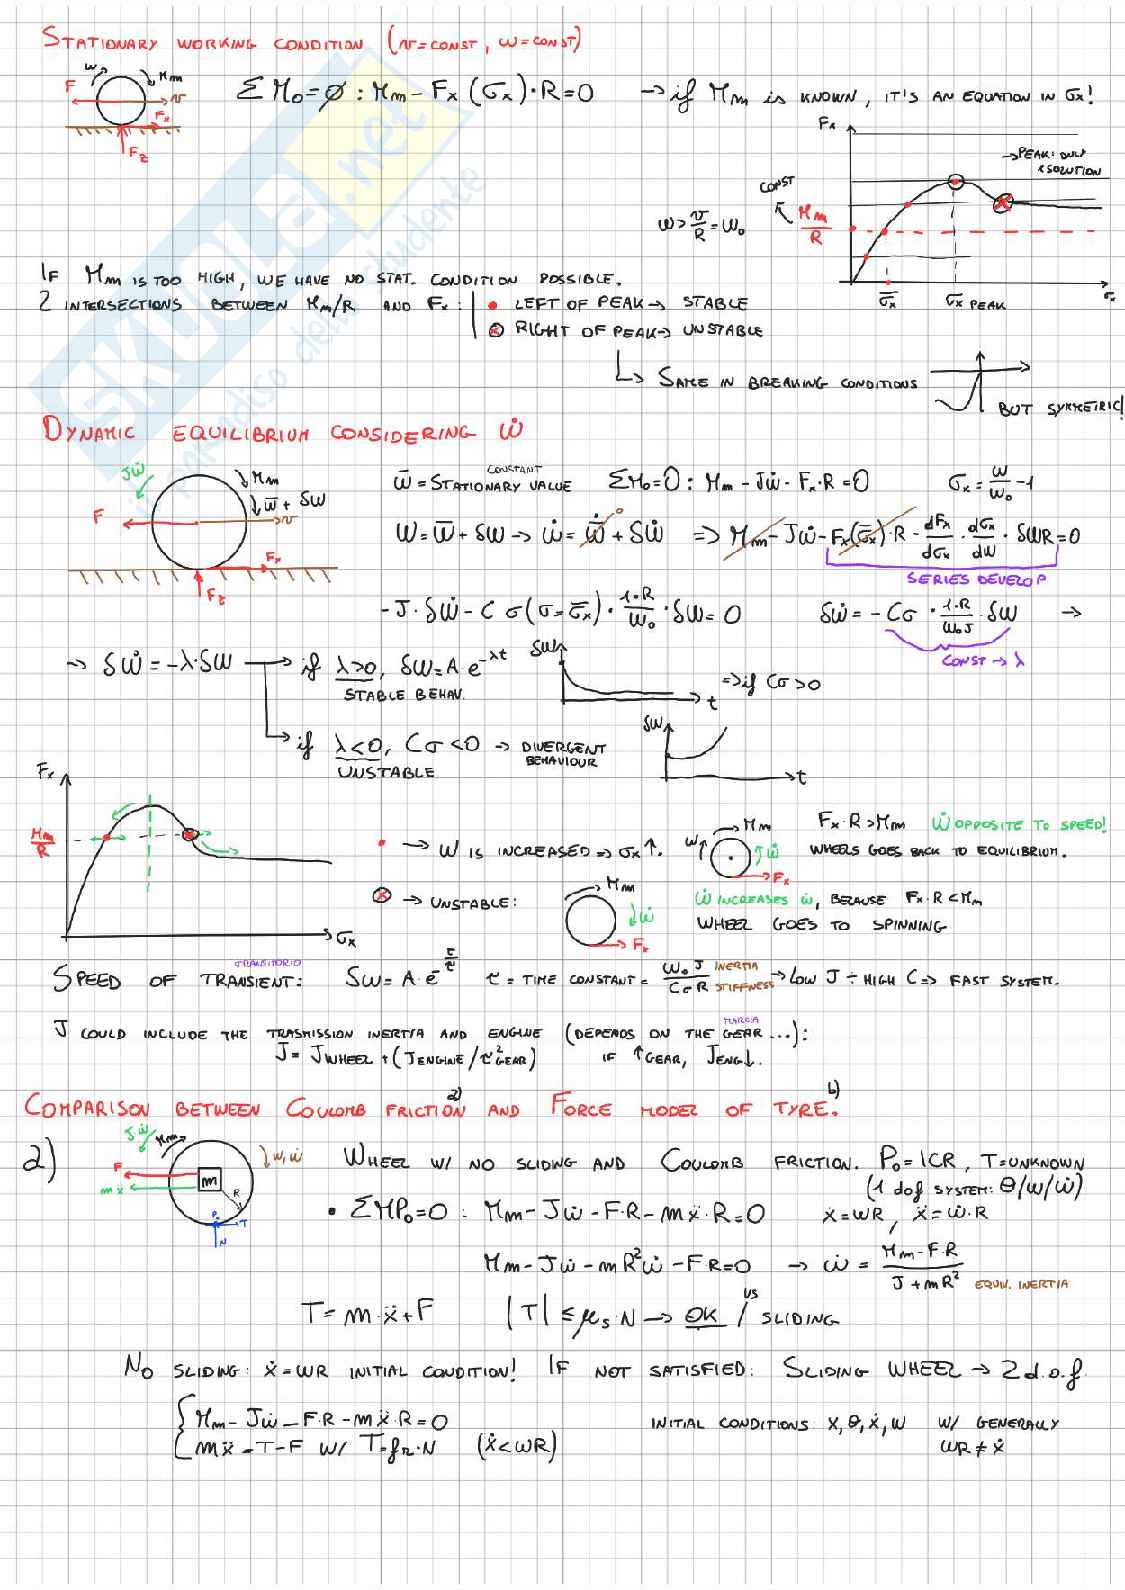 STATIONARY WORKING CONDITION (v=CONST, ω=CONST)
ω Mm
F v
Fx
Fz
ΣMo=∅ : Mm - Fx (σx)·R=0 → if Mm IS KNOWN, IT'S AN EQUATION IN σx!
Fx
→PEAK: ONLY
1 SOLUTION
CONST
ω>v/R=ωo
Mm/R
σ̄x σ̄x PEAK σx
IF Mm IS TOO HIGH, WE HAVE NO STAT. CONDITION POSSIBLE.
2 INTERSECTIONS BETWEEN Mm/R AND Fx: • LEFT OF PEAK → STABLE
⊗ RIGHT OF PEAK → UNSTABLE
↳ SAME IN BREAKING CONDITIONS
BUT SYMMETRIC!
DYNAMIC EQUILIBRIUM CONSIDERING ω̇
Jω̇ Mm
ω̄ + δω
F v
Fx
Fz
CONSTANT
ω̄ = STATIONARY VALUE ΣMo=0 : Mm - Jω̇ - Fx·R=0 σx = ω/ωo -1
ω=ω̄+δω → ω̇= ω̄̇ + δω̇ ⇒ Mm - Jω̇ - Fx(σ̄x)·R - dFx/dσx · dσx/dω · δωR=0
0
SERIES DEVELOP
-J·δω̇ - Cσ(σ=σ̄x)· 1·R/ωo ·δω=0 δω̇ = -Cσ · 1·R/ωoJ · δω →
CONST → λ
→ δω̇ = -λ·δω → if λ>0, δω=A e^-λt δω t ⇒ if Cσ>0
STABLE BEHAV.
→ if λ<0, Cσ<0 → DIVERGENT
BEHAVIOUR
UNSTABLE
δω t
Fx
Mm/R
σx
• → ω IS INCREASED ⇒ σx↑. ω Mm ω̇ Fx
Fx·R>Mm ω̇ OPPOSITE TO SPEED!
WHEELS GOES BACK TO EQUILIBRIUM.
⊗ → UNSTABLE: Mm ω̇ Fx
ω̇ INCREASES ω, BECAUSE Fx·R<Mm
WHEEL GOES TO SPINNING
TRANSITORIO
SPEED OF TRANSIENT: δω=A·e^-t/τ τ = TIME CONSTANT = ωo J/CσR INERTIA STIFFNESS → LOW J ÷ HIGH C ⇒ FAST SYSTEM.
MARCIA
J COULD INCLUDE THE TRASMISSION INERTIA AND ENGINE (DEPENDS ON THE GEAR ...):
J = JWHEEL + (JENGINE/τ²GEAR) IF ↑GEAR, JENG↓.
COMPARISON BETWEEN COULOMB FRICTION a) AND FORCE MODEL OF TYRE. b)
a)
Jω̇ Mm ω, ω̇
F
mẍ
m
R
Po T
N
WHEEL W/ NO SLIDING AND COULOMB FRICTION. Po=ICR, T=UNKNOWN
(1 dof SYSTEM: θ/ω/ω̇)
• ΣMPo=0 : Mm - Jω̇ - F·R - mẍ·R=0 ẋ=ωR, ẍ=ω̇·R
Mm - Jω̇ - mR²ω̇ - F·R=0 → ω̇ = Mm - F·R/J+mR² EQUIV. INERTIA
T= m·ẍ+F |T| ≤ μs·N → OK vs / SLIDING
NO SLIDING: ẋ=ωR INITIAL CONDITION! IF NOT SATISFIED: SLIDING WHEEL → 2 d.o.f.
{ Mm - Jω̇ - F·R - mẍ·R=0
mẍ = T-F W/ T=fR·N (ẋ<ωR)
INITIAL CONDITIONS: x, θ, ẋ, ω W/ GENERALLY
ωR≠ẋ
SKUOLA.net
il paradiso dello studente